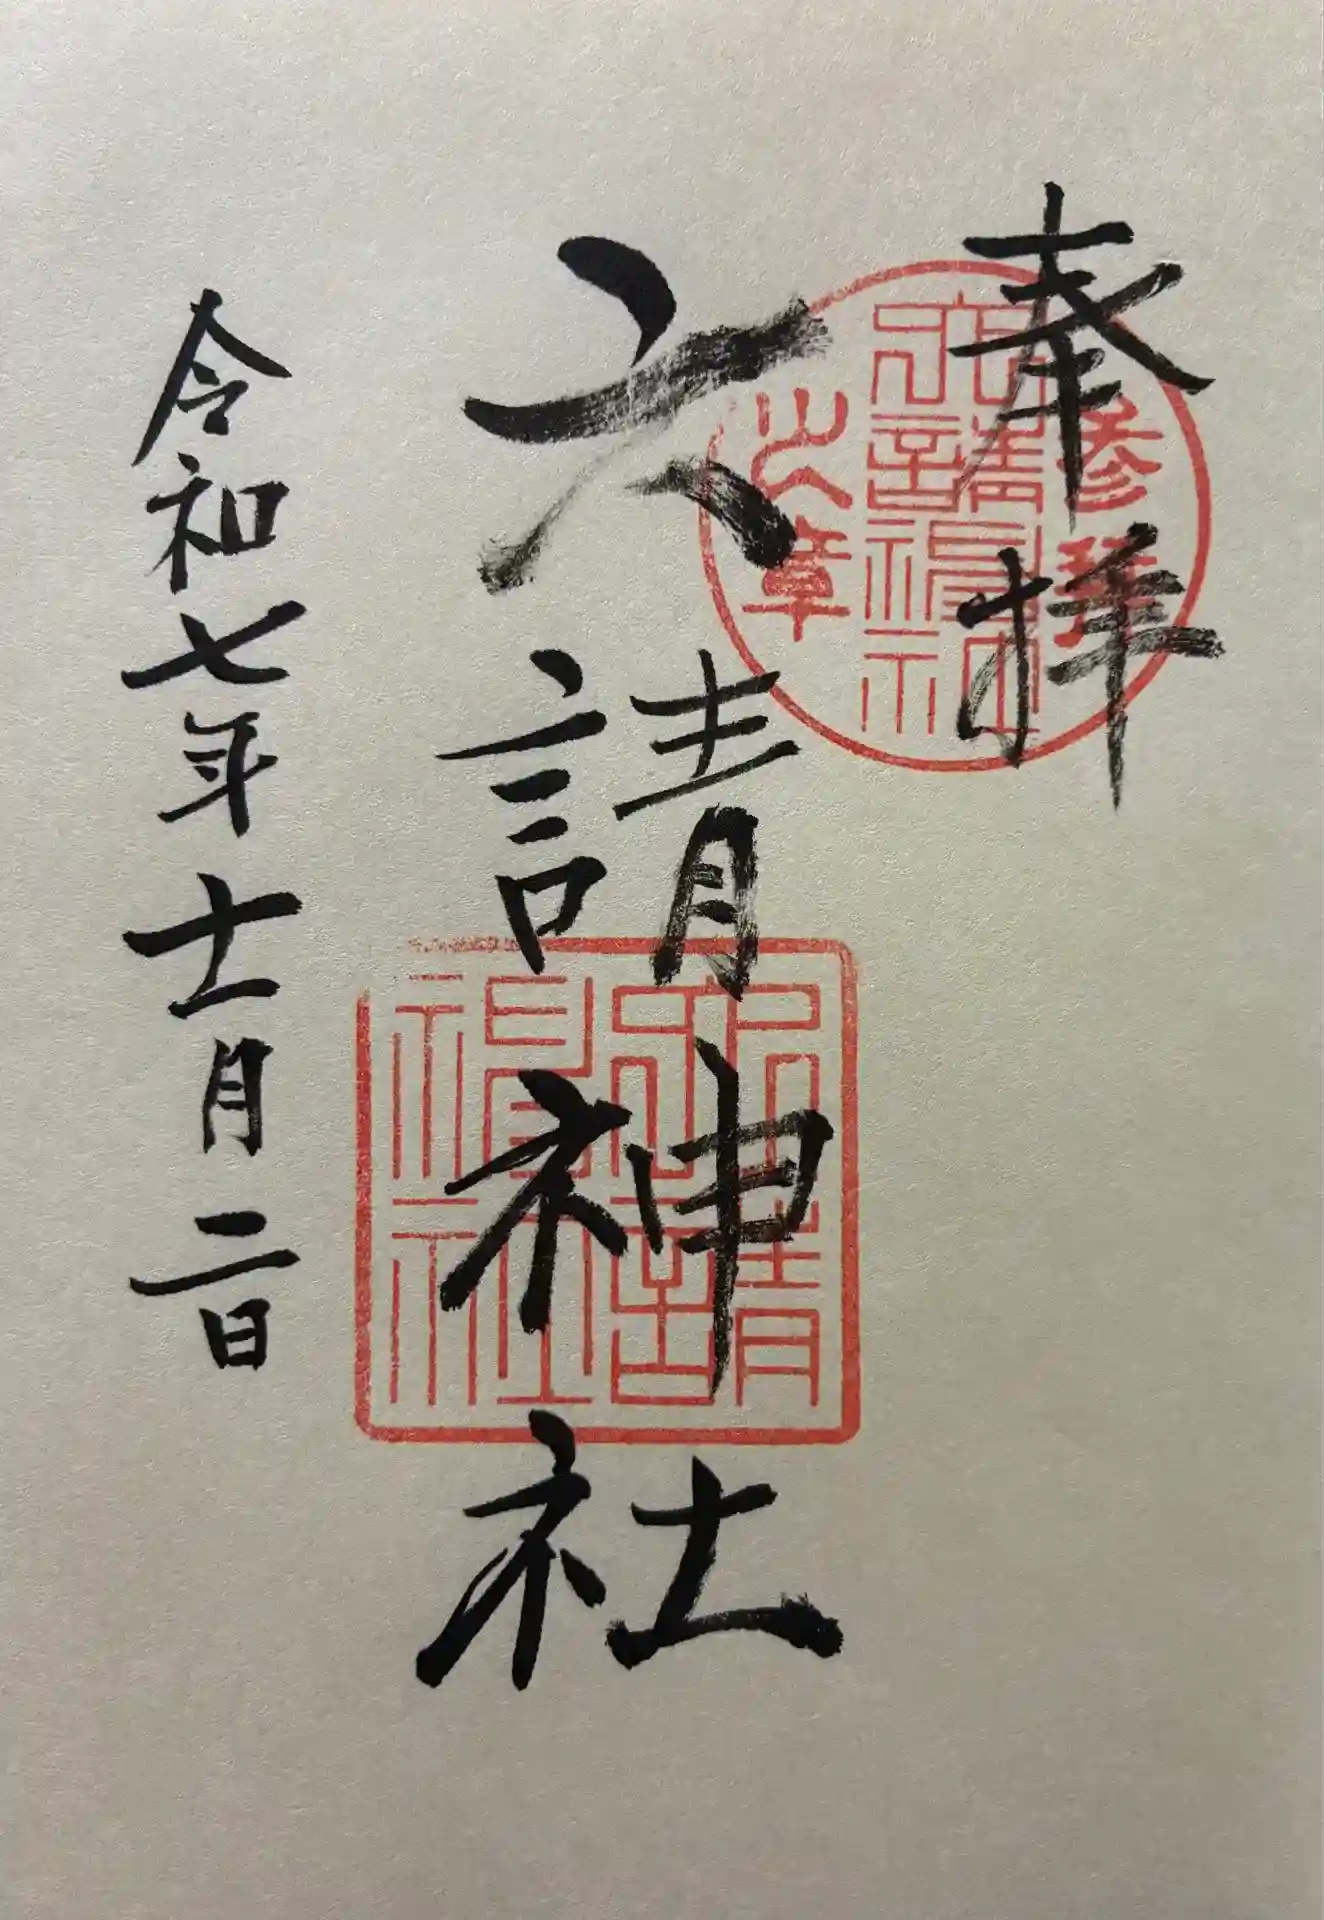 奉拝
参拝
六請神社
之章
六請神社
六請
神社
令和七年十一月二日